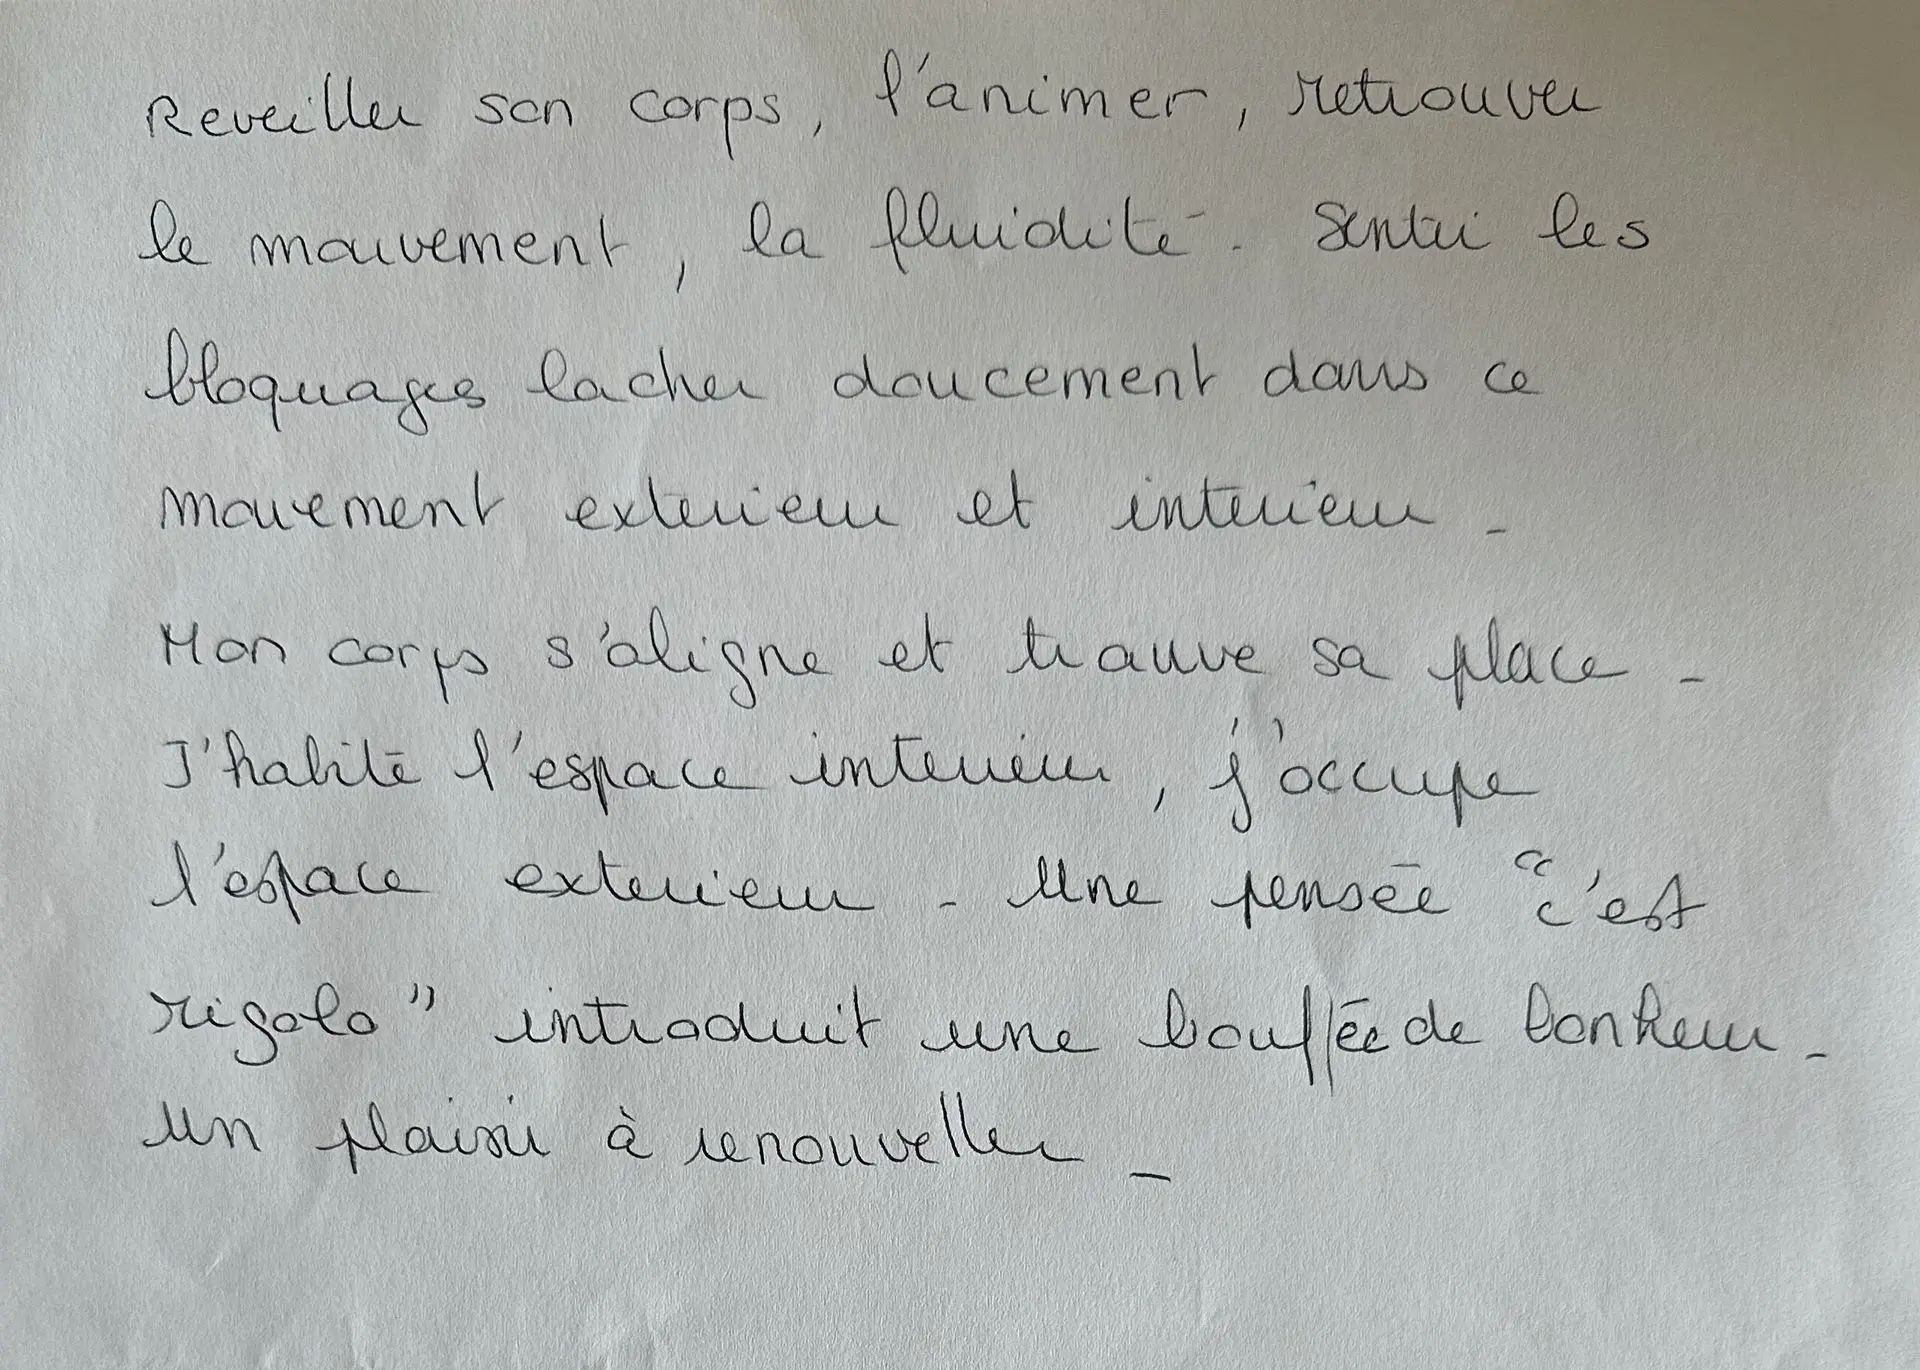 Reveiller son corps, l'animer, retrouver
le mouvement, la fluidité. Sentir les
bloquages lacher doucement dans ce
mouvement exterieur et interieur.
Mon corps s'aligne et trouve sa place.
J'habite l'espace interieur, j'occupe
l'espace exterieur. Une pensée "c'est
rigolo" introduit une bouffée de bonheur.
Un plaisir à renouveller.